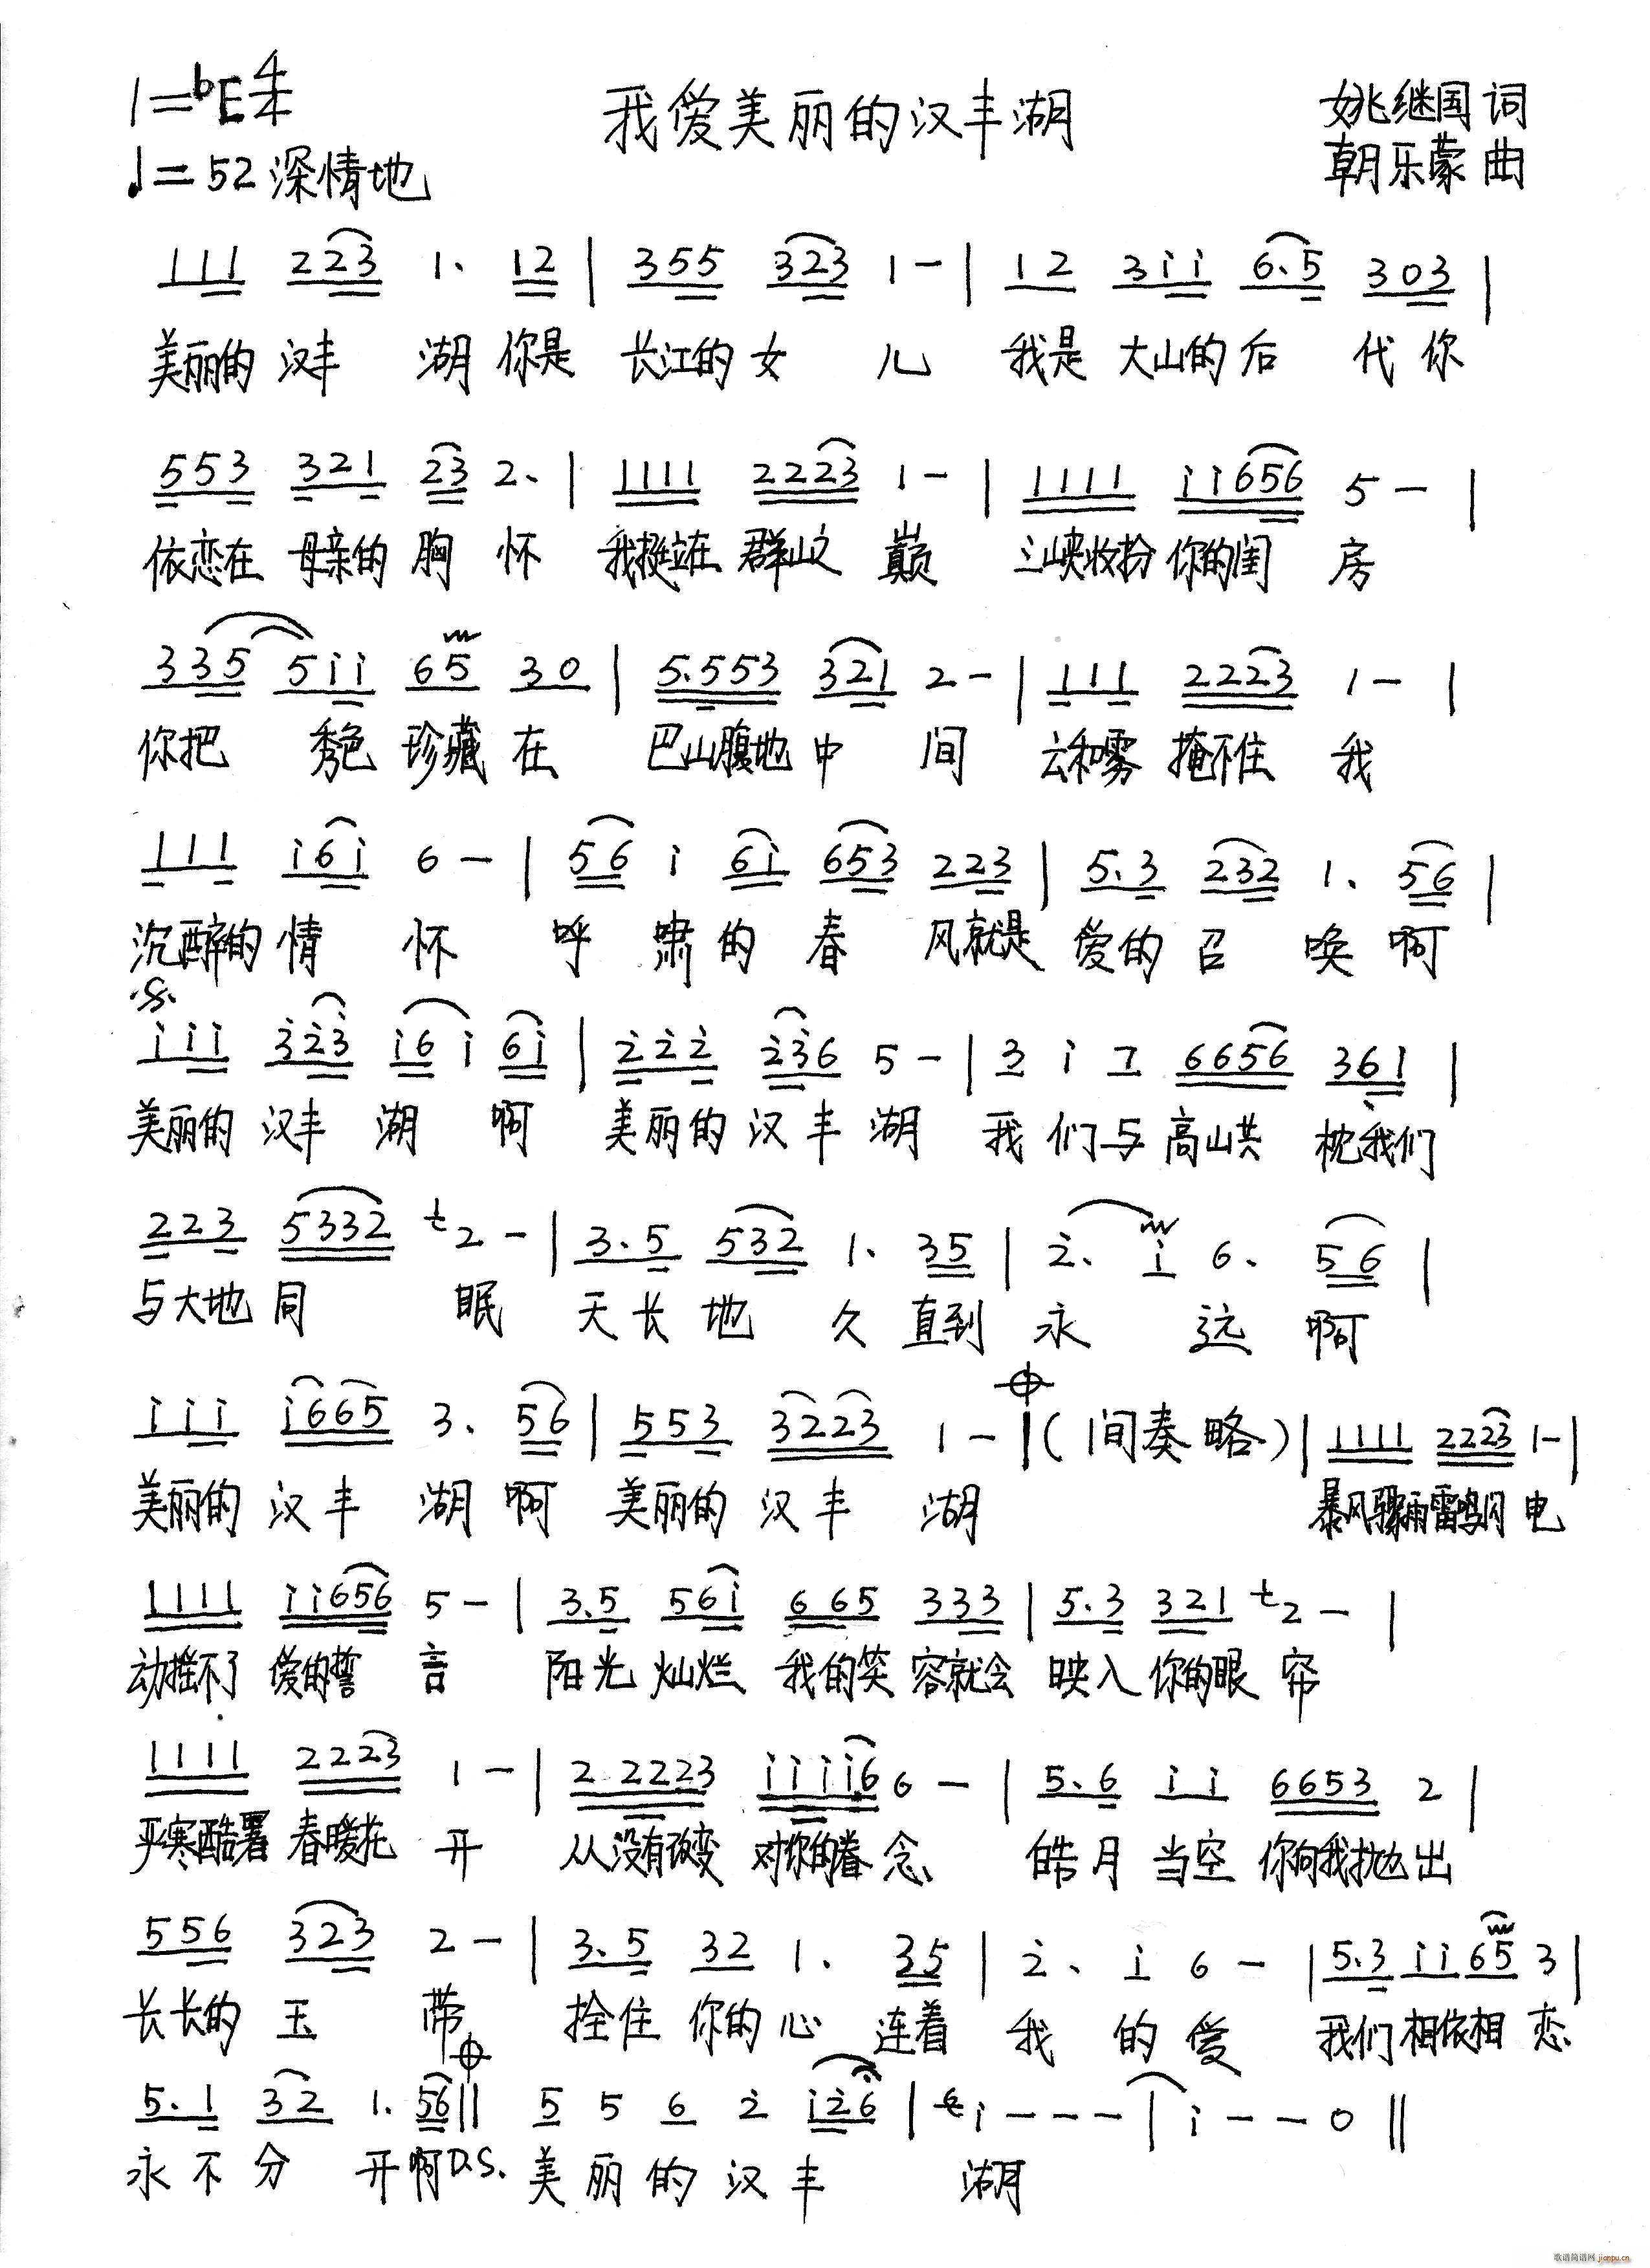 1=♭E 4/4
我爱美丽的汉丰湖
姚继国 词
♩=52 深情地
朝乐蒙 曲
111 223 1. 12 | 355 323 1 - | 12 3i̇i̇ 6.5 303 |
美丽的 汉丰 湖 你是 长江的 女 儿 我是 大山的 后 代 你
553 321 23 2. | 1111 2223 1 - | 1111 i̇i̇656 5 - |
依恋在 母亲的 胸 怀 我挺站在 群山之 巅 三峡收扮 你的闺 房
335 5i̇i̇ 65 30 | 5.553 321 2 - | 111 2223 1 - |
你把 秀色 珍藏 在 巴山腹地 中 间 云和雾 掩不住 我
111 i̇6i̇ 6 - | 56 i̇ 6i̇ 653 223 | 5.3 232 1. 56 |
沉醉的 情 怀 呼 啸 的 春 风就是 爱的 召 唤 啊
i̇i̇i̇ 3̇2̇3̇ i̇6 i̇ 6i̇ | 2̇2̇2̇ 2̇3̇6 5 - | 3 i̇ 7 6656 36̣1 |
美丽的 汉丰 湖 啊 美丽的 汉 丰 湖 我 们 与 高山共 枕我们
223 5332 2 - | 3.5 532 1. 35 | 2̇. i̇ 6. 56 |
与大地 同 眠 天长 地 久 直到 永 远 啊
i̇i̇i̇ i̇665 3. 56 | 553 3223 1 - | (间奏略) | 1111 2223 1 - |
美丽的 汉 丰 湖 啊 美丽的 汉 丰 湖 暴风骤雨 雷鸣闪 电
1111 i̇i̇656 5 - | 3.5 56i̇ 665 333 | 5.3 321 2 - |
动摇不了 爱的誓 言 阳光 灿烂 我的笑 容就会 映入 你的眼 帘
1111 2223 1 - | 2 2223 i̇i̇i̇i̇6 6 - | 5.6 i̇i̇ 6653 2 |
严寒酷署 春暖花 开 从没有改变 对你的眷 念 皓月 当空 你向我抛 出
556 323 2 - | 3.5 32 1. 35 | 2̇. i̇ 6 - | 5.3 i̇i̇ 65 3 |
长长的 玉 带 拴住 你的 心 连着 我 的 爱 我们 相依相 恋
5.1 32 1. 56 || 5 5 6 2̇ i̇2̇6 | i̇ - - - | i̇ - - 0 ||
永不 分 开 啊 D.S. 美 丽 的 汉 丰 湖
歌谱简谱网 jianpu.cn